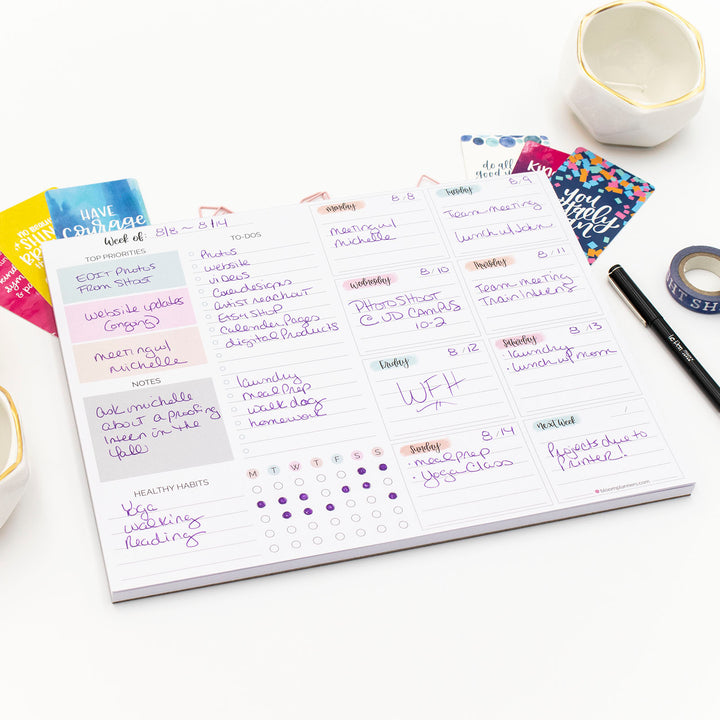 HAVE
Courage
do all
good
you
Week of: 8/8 ~ 8/14
TOP PRIORITIES
EDIT Photos
From SHoot
website updates
(ongoing)
meeting w/
michelle
NOTES
ask michelle
about a proofing
intern in the
fall
HEALTHY HABITS
Yoga
walking
Reading
TO-DOS
Photos
website
videos
Core designs
artist reachout
Etsy Shop
Calender Pages
digital Products
laundry
meal Prep
walk dog
homework
M T W T F S S
Monday 8/8
meeting w/
michelle
Tuesday 8/9
Team meeting
Lunch w/ John
Wednesday 8/10
PHOTOSHOOT
@ UD CAMPUS
10-2
Thursday 8/11
Team meeting
Train interns
Friday 8/12
WFH
Saturday 8/13
• laundry
• lunch w/ mom
Sunday 8/14
• meal prep
• Yoga Class
Next Week /
Projects due to
Printer!
bloomplanners.com